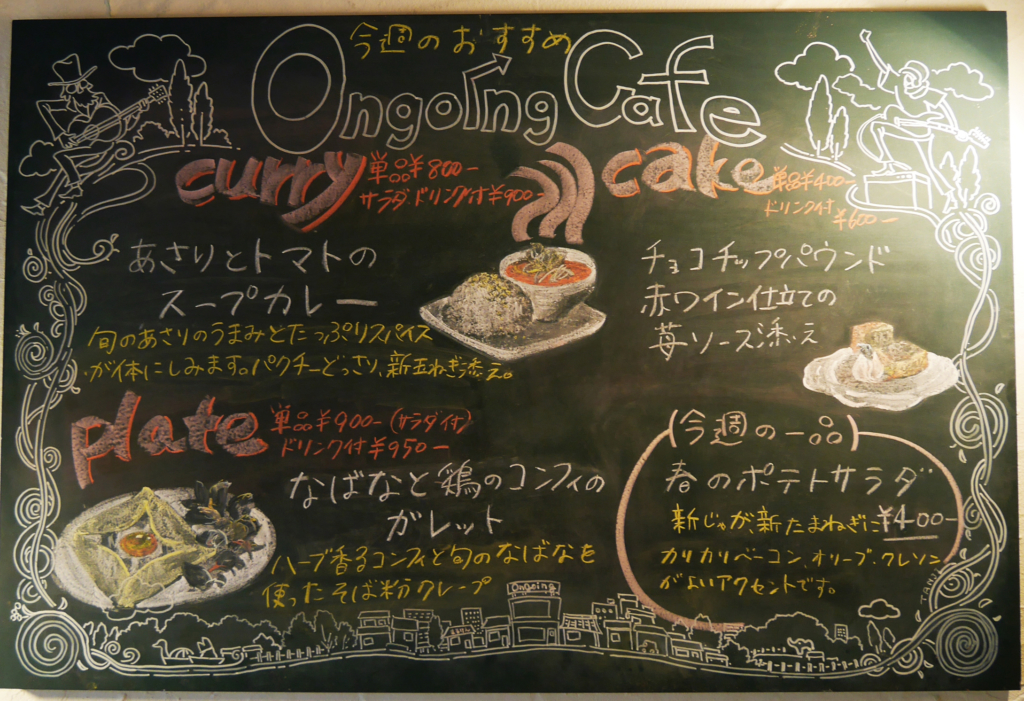 今週のおすすめ
Ongoing Cafe
curry
単品¥800-
サラダ、ドリンク付¥900-
あさりとトマトの
スープカレー
旬のあさりのうまみとたっぷりスパイス
が体にしみます。パクチーどっさり、新玉ねぎ添え。
cake
単品¥400-
ドリンク付
¥600-
チョコチップパウンド
赤ワイン仕立ての
苺ソース添え
plate
単品¥900-(サラダ付)
ドリンク付¥950-
なばなと鶏のコンフィの
ガレット
ハーブ香るコンフィと旬のなばなを
使ったそば粉クレープ
(今週の一品)
春のポテトサラダ
¥400-
新じゃが、新たまねぎに
カリカリベーコン、オリーブ、クレソン
がよいアクセントです。
Ongoing